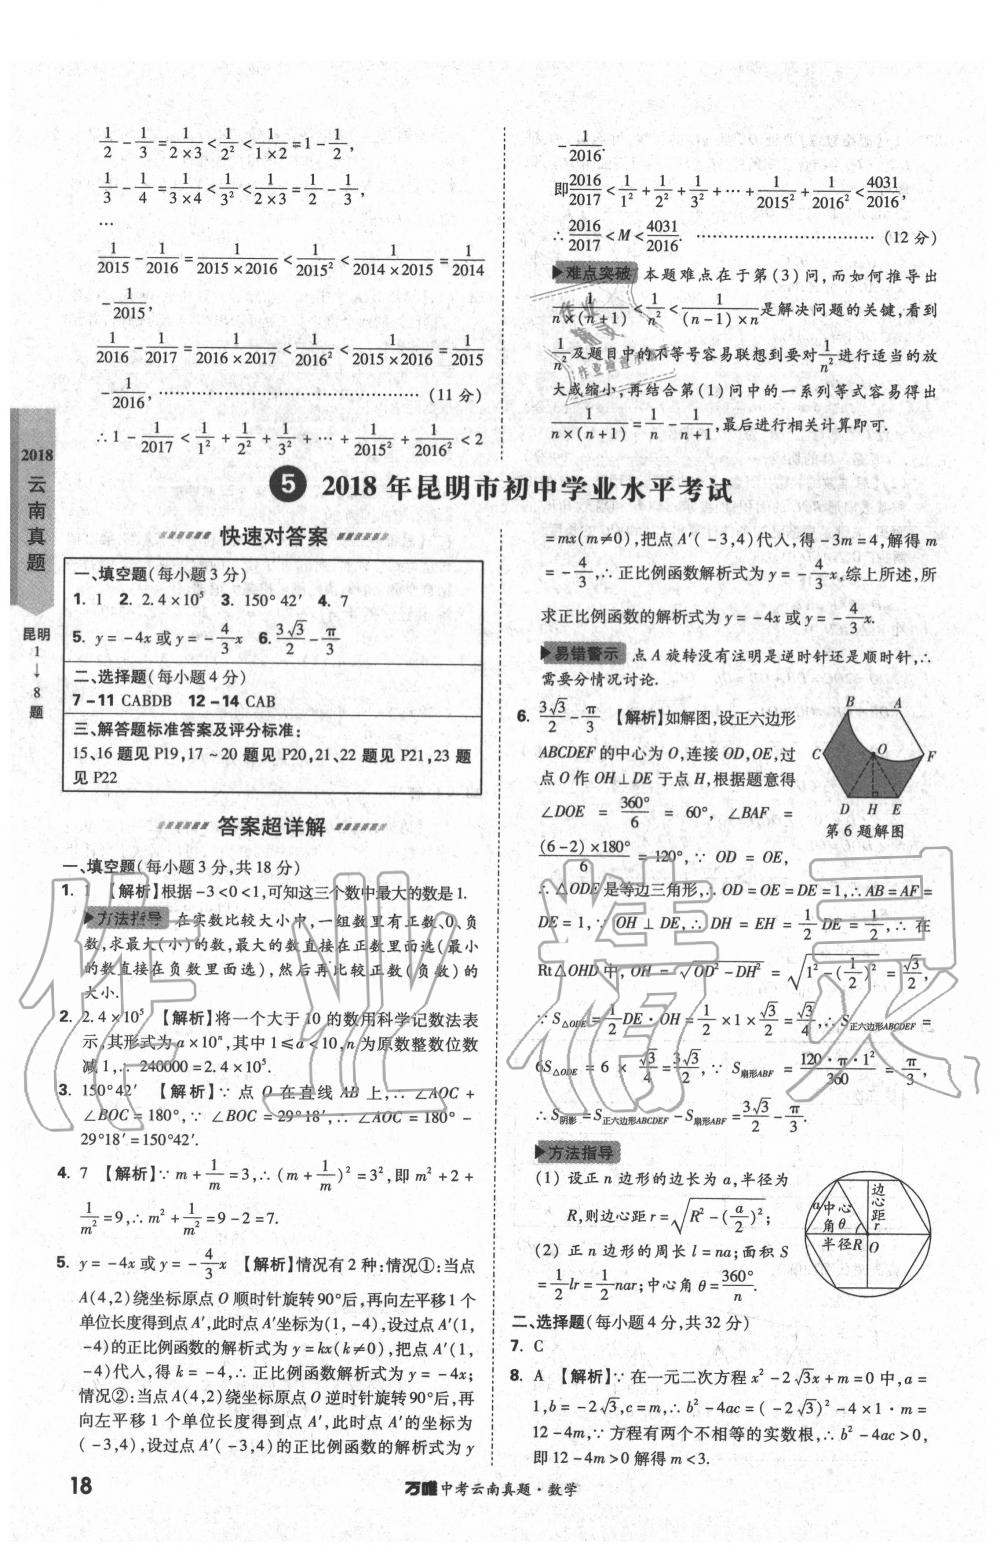 1/2-1/3=1/(2×3)<1/2²<1/(1×2)=1-1/2,
1/3-1/4=1/(3×4)<1/3²<1/(2×3)=1/2-1/3,
…
1/2015-1/2016=1/(2015×2016)<1/2015²<1/(2014×2015)=1/2014
-1/2015,
1/2016-1/2017=1/(2016×2017)<1/2016²<1/(2015×2016)=1/2015
-1/2016,……………………………(11分)
∴1-1/2017<1/1²+1/2²+1/3²+…+1/2015²+1/2016²<2
-1/2016.
即2016/2017<1/1²+1/2²+1/3²+…+1/2015²+1/2016²<4031/2016,
∴2016/2017<M<4031/2016.……………………(12分)
难点突破 本题难点在于第(3)问,而如何推导出
1/(n×(n+1))<1/n²<1/((n-1)×n)是解决问题的关键,看到
1/n²及题目中的不等号容易联想到要对1/n²进行适当的放
大或缩小,再结合第(1)问中的一系列等式容易得出
1/(n×(n+1))=1/n-1/(n+1),最后进行相关计算即可.
2018
云南真题
昆明
1
↓
8
题
5 2018年昆明市初中学业水平考试
快速对答案
一、填空题(每小题3分)
1. 1 2. 2.4×10⁵ 3. 150°42′ 4. 7
5. y=-4x或y=-4/3x 6. 3√3/2-π/3
二、选择题(每小题4分)
7-11 CABDB 12-14 CAB
三、解答题标准答案及评分标准:
15、16题见P19,17~20题见P20,21、22题见P21,23题
见P22
答案超详解
一、填空题(每小题3分,共18分)
1. 1 【解析】根据-3<0<1,可知这三个数中最大的数是1.
方法指导 在实数比较大小中,一组数里有正数、0、负
数,求最大(小)的数,最大的数直接在正数里面选(最小
的数直接在负数里面选),然后再比较正数(负数)的
大小.
2. 2.4×10⁵ 【解析】将一个大于10的数用科学记数法表
示,其形式为a×10ⁿ,其中1≤a<10,n为原数整数位数
减1,∴240000=2.4×10⁵.
3. 150°42′ 【解析】∵点O在直线AB上,∴∠AOC+
∠BOC=180°,∵∠BOC=29°18′,∴∠AOC=180°-
29°18′=150°42′.
4. 7 【解析】∵m+1/m=3,∴(m+1/m)²=3²,即m²+2+
1/m²=9,∴m²+1/m²=9-2=7.
5. y=-4x或y=-4/3x 【解析】情况有2种:情况①:当点
A(4,2)绕坐标原点O顺时针旋转90°后,再向左平移1个
单位长度得到点A′,此时点A′坐标为(1,-4),设过点A′(1,
-4)的正比例函数的解析式为y=kx(k≠0),把点A′(1,
-4)代人,得k=-4,∴正比例函数解析式为y=-4x;
情况②:当点A(4,2)绕坐标原点O逆时针旋转90°后,再
向左平移1个单位长度得到点A′,此时点A′的坐标为
(-3,4),设过点A′(-3,4)的正比例函数的解析式为y
=mx(m≠0),把点A′(-3,4)代人,得-3m=4,解得m
=-4/3,∴正比例函数解析式为y=-4/3x,综上所述,所
求正比例函数的解析式为y=-4x或y=-4/3x.
易错警示 点A旋转没有注明是逆时针还是顺时针,∴
需要分情况讨论.
6. 3√3/2-π/3 【解析】如解图,设正六边形
ABCDEF的中心为O,连接OD,OE,过
点O作OH⊥DE于点H,根据题意得
∠DOE=360°/6=60°,∠BAF=
(6-2)×180°/6=120°,∵OD=OE,
B A
C O F
D H E
第6题解图
∴△ODE是等边三角形,∴OD=OE=DE=1,∴AB=AF=
DE=1,∵OH⊥DE,∴DH=EH=1/2DE=1/2,∴在
Rt△OHD中,OH=√(OD²-DH²)=√(1²-(1/2)²)=√3/2,
∵S△ODE=1/2DE·OH=1/2×1×√3/2=√3/4,∴S正六边形ABCDEF=
6S△ODE=6×√3/4=3√3/2,∵S扇形ABF=120·π·1²/360=π/3,
∴S阴影=S正六边形ABCDEF-S扇形ABF=3√3/2-π/3.
方法指导
(1)设正n边形的边长为a,半径为
R,则边心距r=√(R²-(a/2)²);
(2)正n边形的周长l=na;面积S
=1/2lr=1/2nar;中心角θ=360°/n.
a 中心角θ 边心距r
半径R O
二、选择题(每小题4分,共32分)
7. C
8. A 【解析】∵在一元二次方程x²-2√3x+m=0中,a=
1,b=-2√3,c=m,∴b²-4ac=(-2√3)²-4×1·m=
12-4m,∵方程有两个不相等的实数根,∴b²-4ac>0,
即12-4m>0解得m<3.
18
万唯中考云南真题·数学
作业精灵